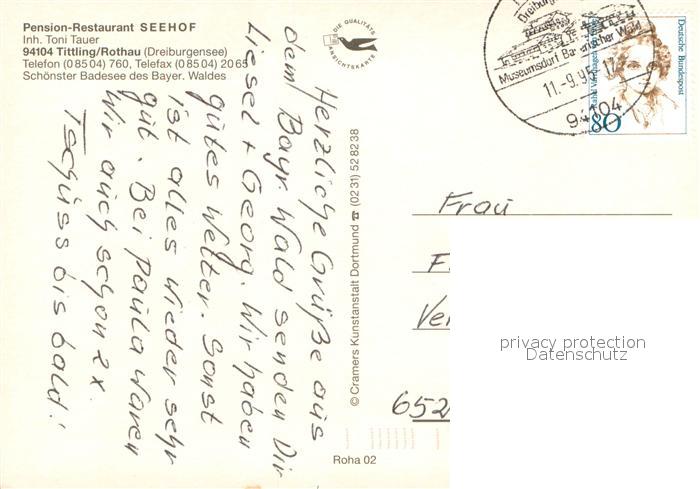 Pension-Restaurant SEEHOF
Inh. Toni Tauer
94104 Tittling/Rothau (Dreiburgensee)
Telefon (0 85 04) 760, Telefax (0 85 04) 20 65
Schönster Badesee des Bayer. Waldes
DIE QUALITÄTS
ANSICHTSKARTE
Museumsdorf Bayerischer Wald
11.-9.95-17
94104
Deutsche Bundespost
80
Herzliche Grüße aus
dem Bayr. Wald senden Dir
Liesel + Georg. Wir haben
gutes Wetter. Sonst
ist alles wieder sehr
gut. Bei Paula waren
wir auch schon 2x.
Tschüss bis bald!
© Cramers Kunstanstalt Dortmund ☎ (02 31) 52 82 38
Frau
F
Ve
652
privacy protection
Datenschutz
Roha 02